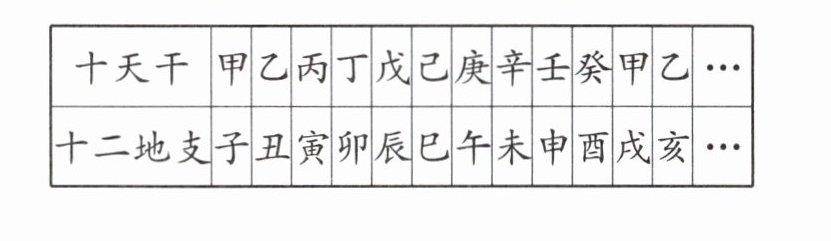 十天干 甲 乙 丙 丁 戊 己 庚 辛 壬 癸 甲 乙 …
十二地支 子 丑 寅 卯 辰 巳 午 未 申 酉 戌 亥 …